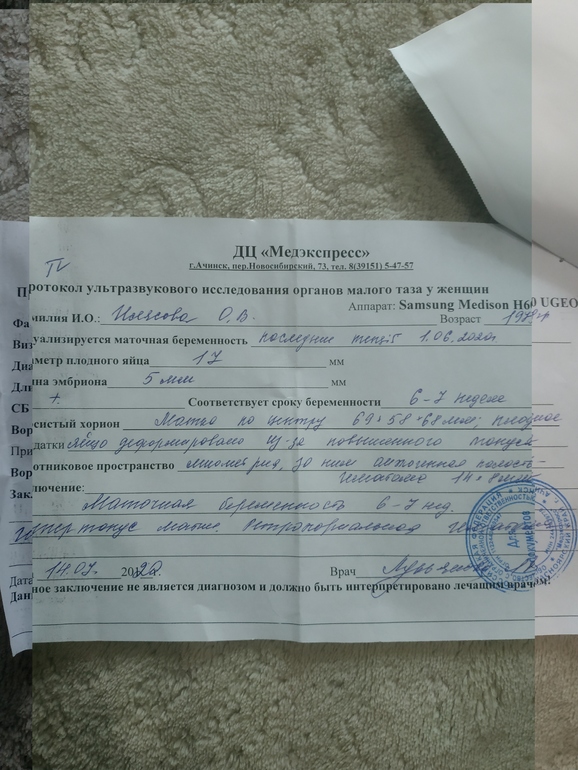 ДЦ «Медэкспресс»
г.Ачинск, пер.Новосибирский, 73, тел. 8(39151) 5-47-57
IV
Протокол ультразвукового исследования органов малого таза у женщин
Аппарат: Samsung Medison H60 UGEO
Фамилия И.О.: О.В. Возраст
Визуализируется маточная беременность последние 1.06.2020г
Диаметр плодного яйца 17 мм
Длина эмбриона 5 мм мм
СБ + Соответствует сроку беременности 6-7 недель
Ворсистый хорион Матка по центру 69*58*68мм; плодное
Придатки яйцо деформировано из-за повышенного тонуса
Воротниковое пространство за ним полость
Заключение: гематома 14*8мм
Маточная беременность 6-7 нед.
гипертонус матки. Ретрохориальная гематома
Дата 14.07. 2020 Врач
Данное заключение не является диагнозом и должно быть интерпретировано лечащим врачом!
Для документов